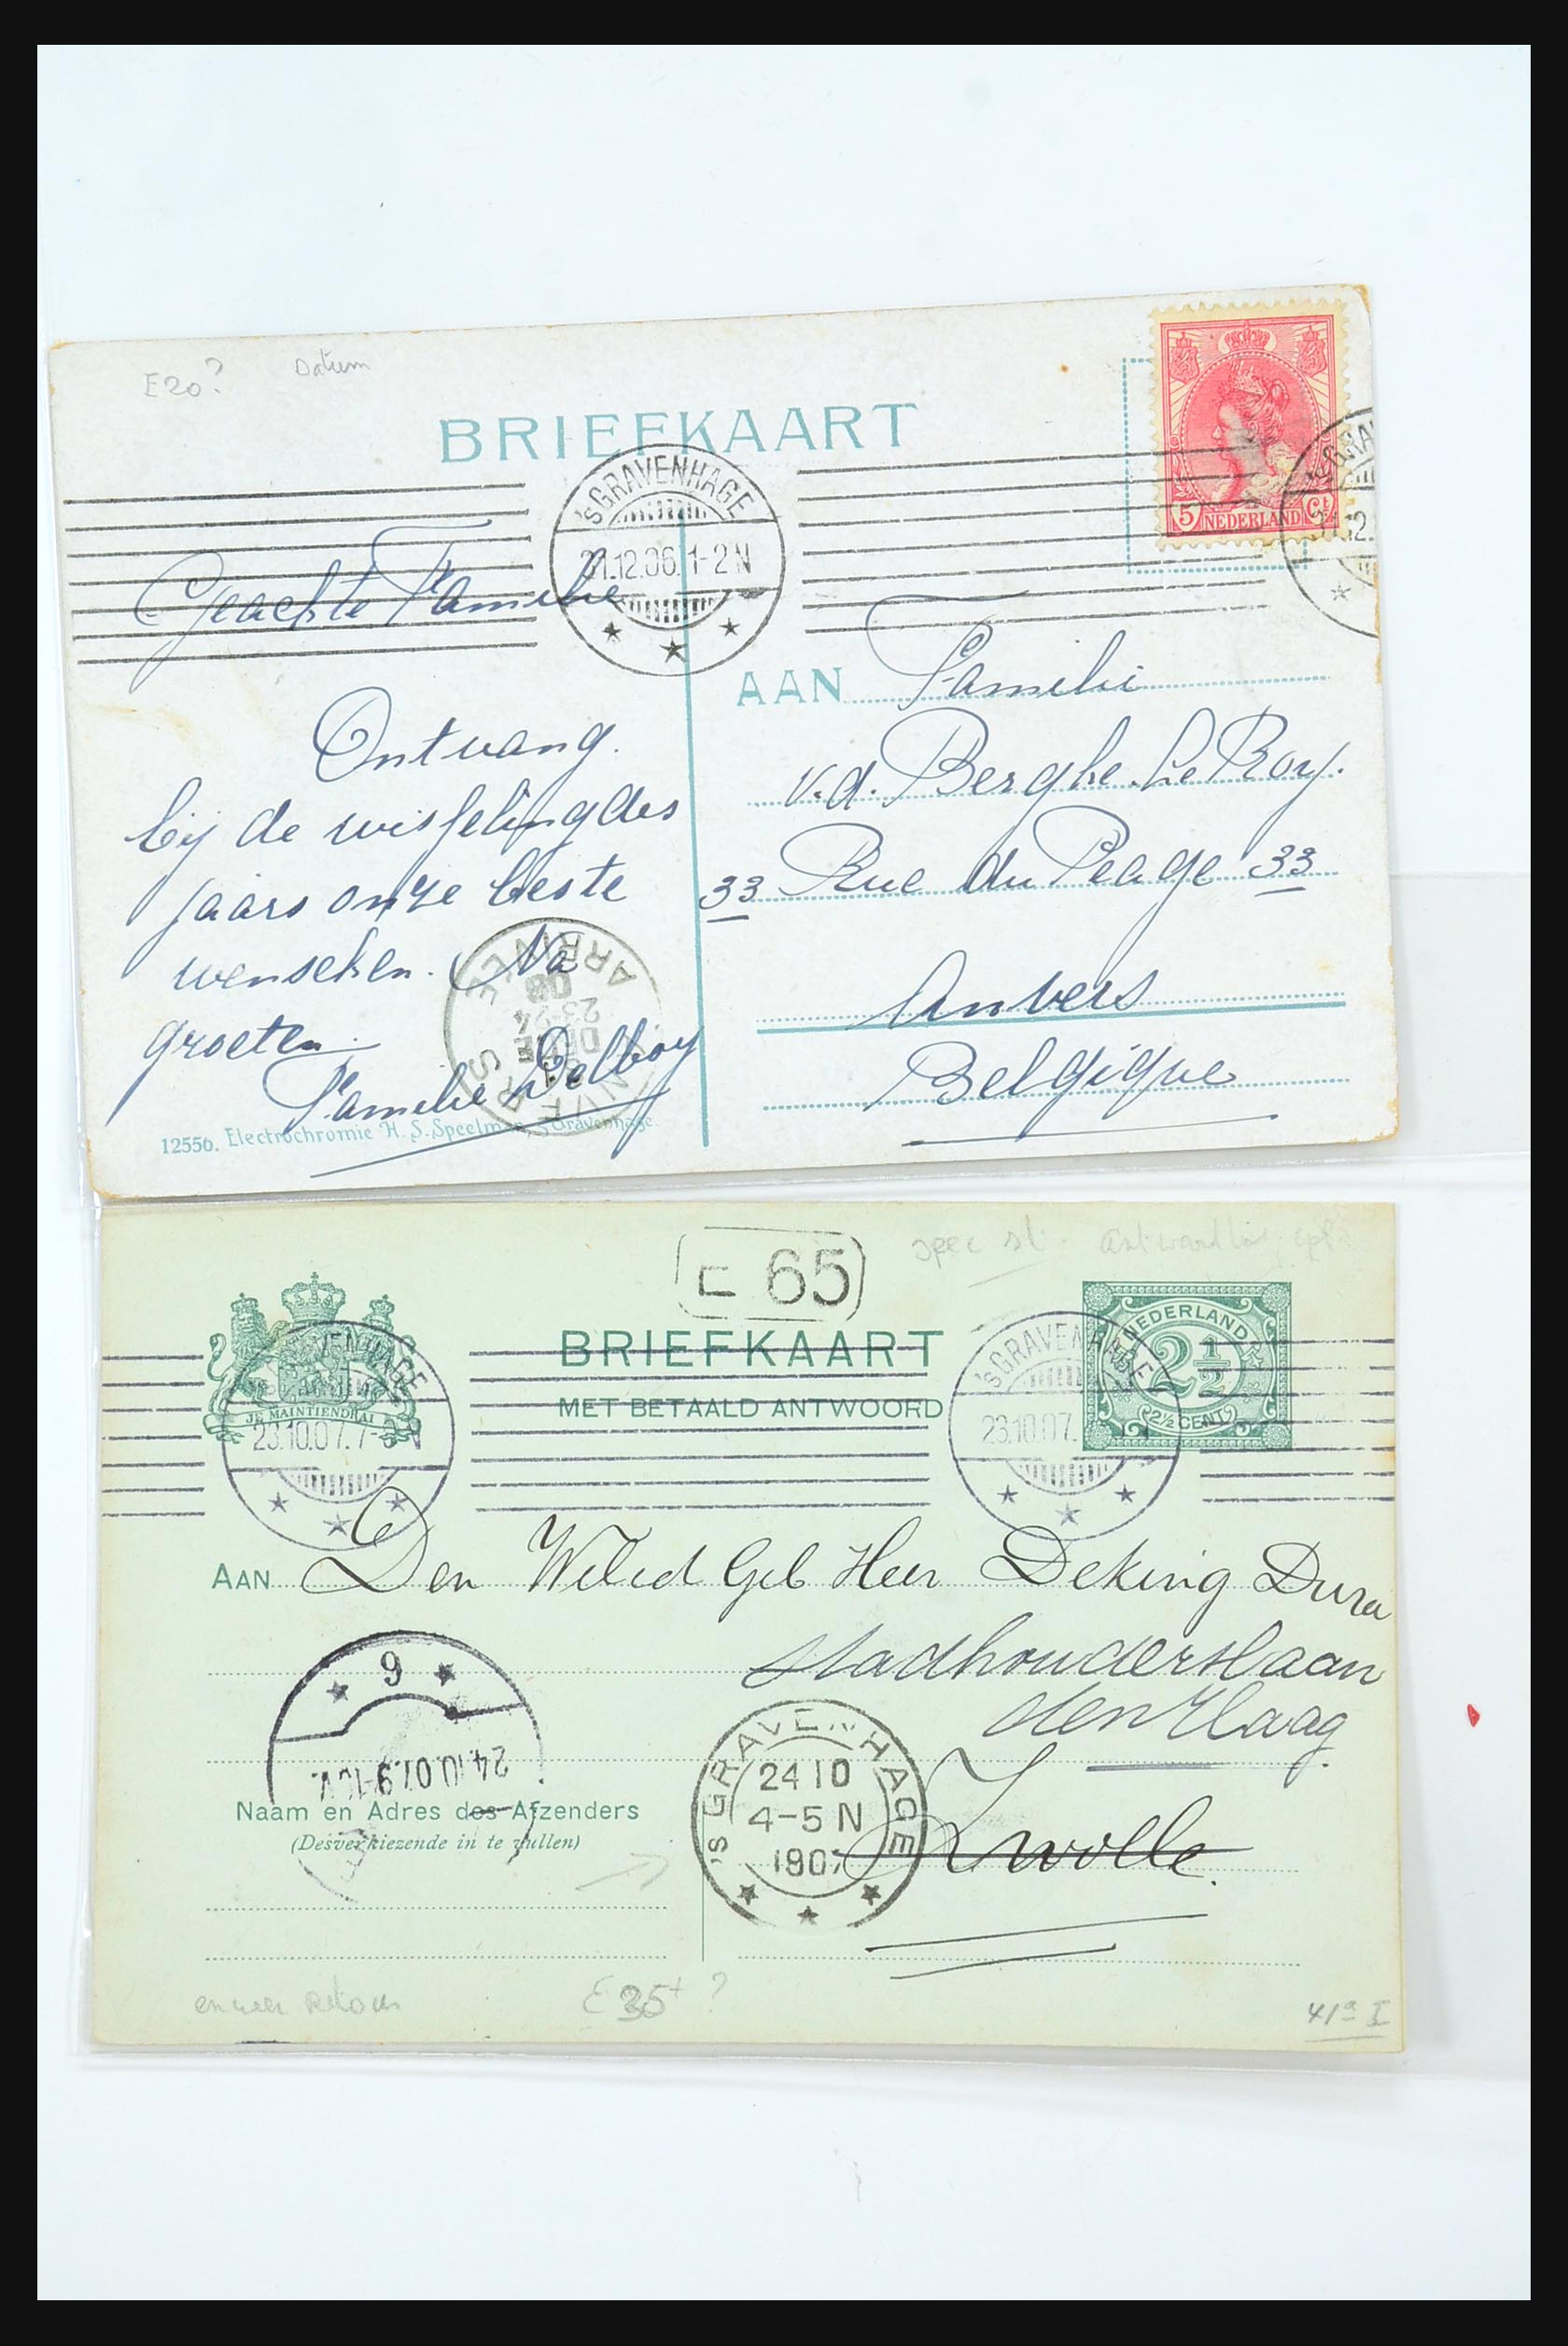 E20? Datum
BRIEFKAART
'SGRAVENHAGE
21.12.06. 1-2 N
5 NEDERLAND Ct
Geachte Familie
Ontvang.
bij de wisseling des
jaars onze beste
wenschen. Na
groeten.
Familie Delboy
AAN Familie
v.d. Berghe. Le Roy.
33 Rue du Peage 33
Anvers
Belgique
ANVERS
DEC
23-24
ARRIVEE
12556. Electrochromie H. S. Speelman, 'sGravenhage.
E 65
spec st. antwoord
BRIEFKAART
MET BETAALD ANTWOORD
JE MAINTIENDRAI
'SGRAVENHAGE
23.10.07. 7-8 N
'SGRAVENHAGE
23.10.07.
NEDERLAND
2½
2½ CENT
AAN Den Weled Geb Heer Deking Dura
Stadhouderslaan
den Haag
Zwolle.
9
24.10.07. 9-10V.
'S GRAVENHAGE
24 10
4-5 N
1907
Naam en Adres des Afzenders
(Desverkiezende in te vullen)
en weer Retour
E 35+ ?
41a I